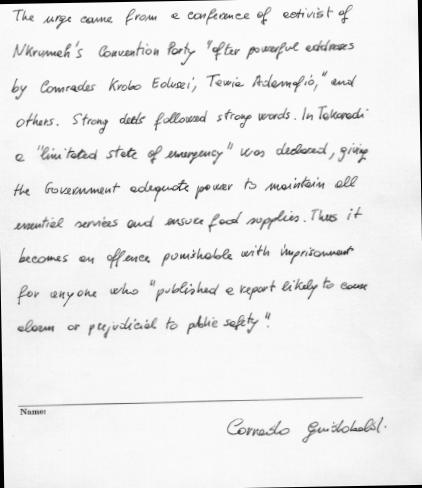 The urge came from a conference of activist of
Nkrumah's Convention Party "after powerful addresses
by Comrades Krobo Edusei, Tawia Adamafio," and
others. Strong deeds followed strong words. In Takoradi
a "limitated state of emergency" was declared, giving
the Government adequate power to maintain all
essential services and ensure food supplies. Thus it
becomes an offence punishable with imprisonment
for anyone who "published a report likely to cause
alarm or prejudicial to public safety".
Name: